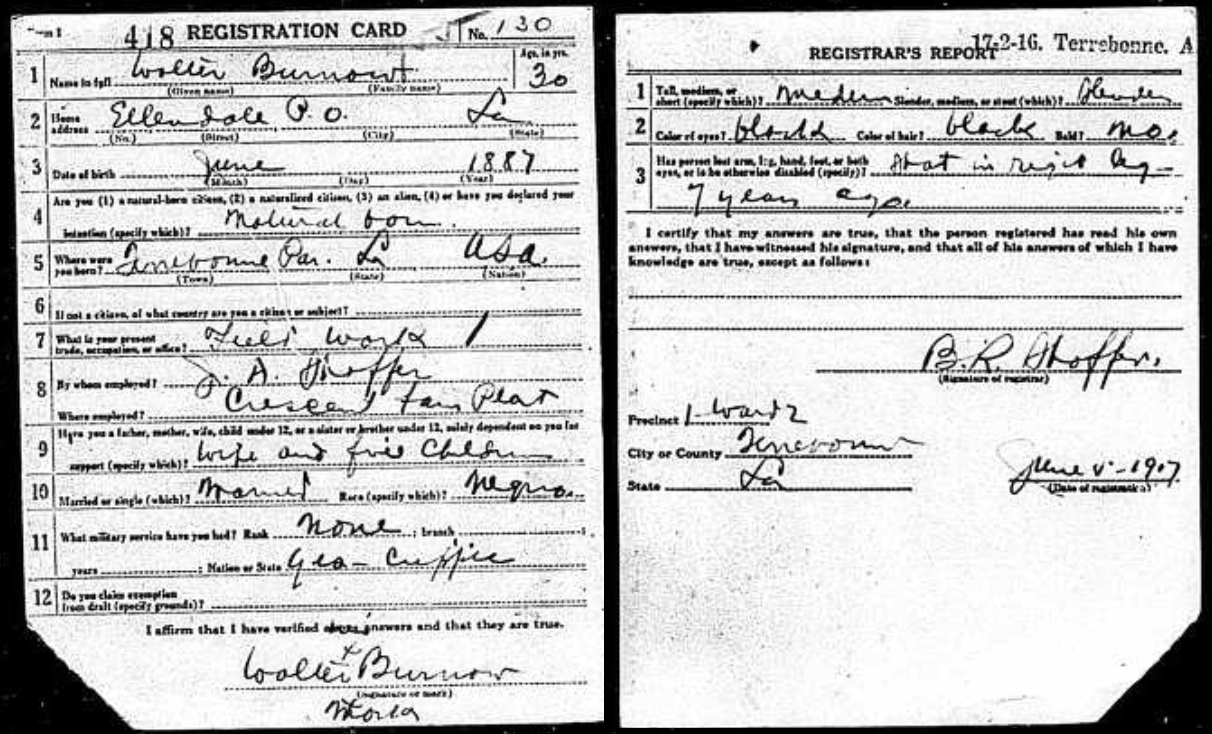 418 REGISTRATION CARD No. 130
Age, in yrs.
1 Name in full Walter Burnow 30
(Given name) (Family name)
2 Home address Ellendale P.O. La
(No.) (Street) (City) (State)
3 Date of birth June 1887
(Month) (Day) (Year)
Are you (1) a natural-born citizen, (2) a naturalized citizen, (3) an alien, (4) or have you declared your
4 intention (specify which)? Natural born.
5 Where were you born? Terrebonne Par. La USA.
(Town) (State) (Nation)
6 If not a citizen, of what country are you a citizen or subject?
7 What is your present trade, occupation, or office? Field work 1
8 By whom employed? J. A. Shaffer
Where employed? Crescent Farm Plant
Have you a father, mother, wife, child under 12, or a sister or brother under 12, solely dependent on you for
9 support (specify which)? Wife and five Children
10 Married or single (which)? Married Race (specify which)? Negro.
11 What military service have you had? Rank None ; branch ;
years ; Nation or State
12 Do you claim exemption from draft (specify grounds)?
I affirm that I have verified above answers and that they are true.
x
Walter Burnow
(Signature or mark)
Mark
17-2-16. Terrebonne. A
REGISTRAR'S REPORT
1 Tall, medium, or short (specify which)? Medium Slender, medium, or stout (which)? Slender
2 Color of eyes? black Color of hair? black Bald? no.
3 Has person lost arm, leg, hand, foot, or both eyes, or is he otherwise disabled (specify)? Shot in right leg -
7 years ago.
I certify that my answers are true, that the person registered has read his own
answers, that I have witnessed his signature, and that all of his answers of which I have
knowledge are true, except as follows:
B. R. Shaffer.
(Signature of registrar)
Precinct 1 Ward 2
City or County Terrebonne
State La
June 5 - 1917
(Date of registration)